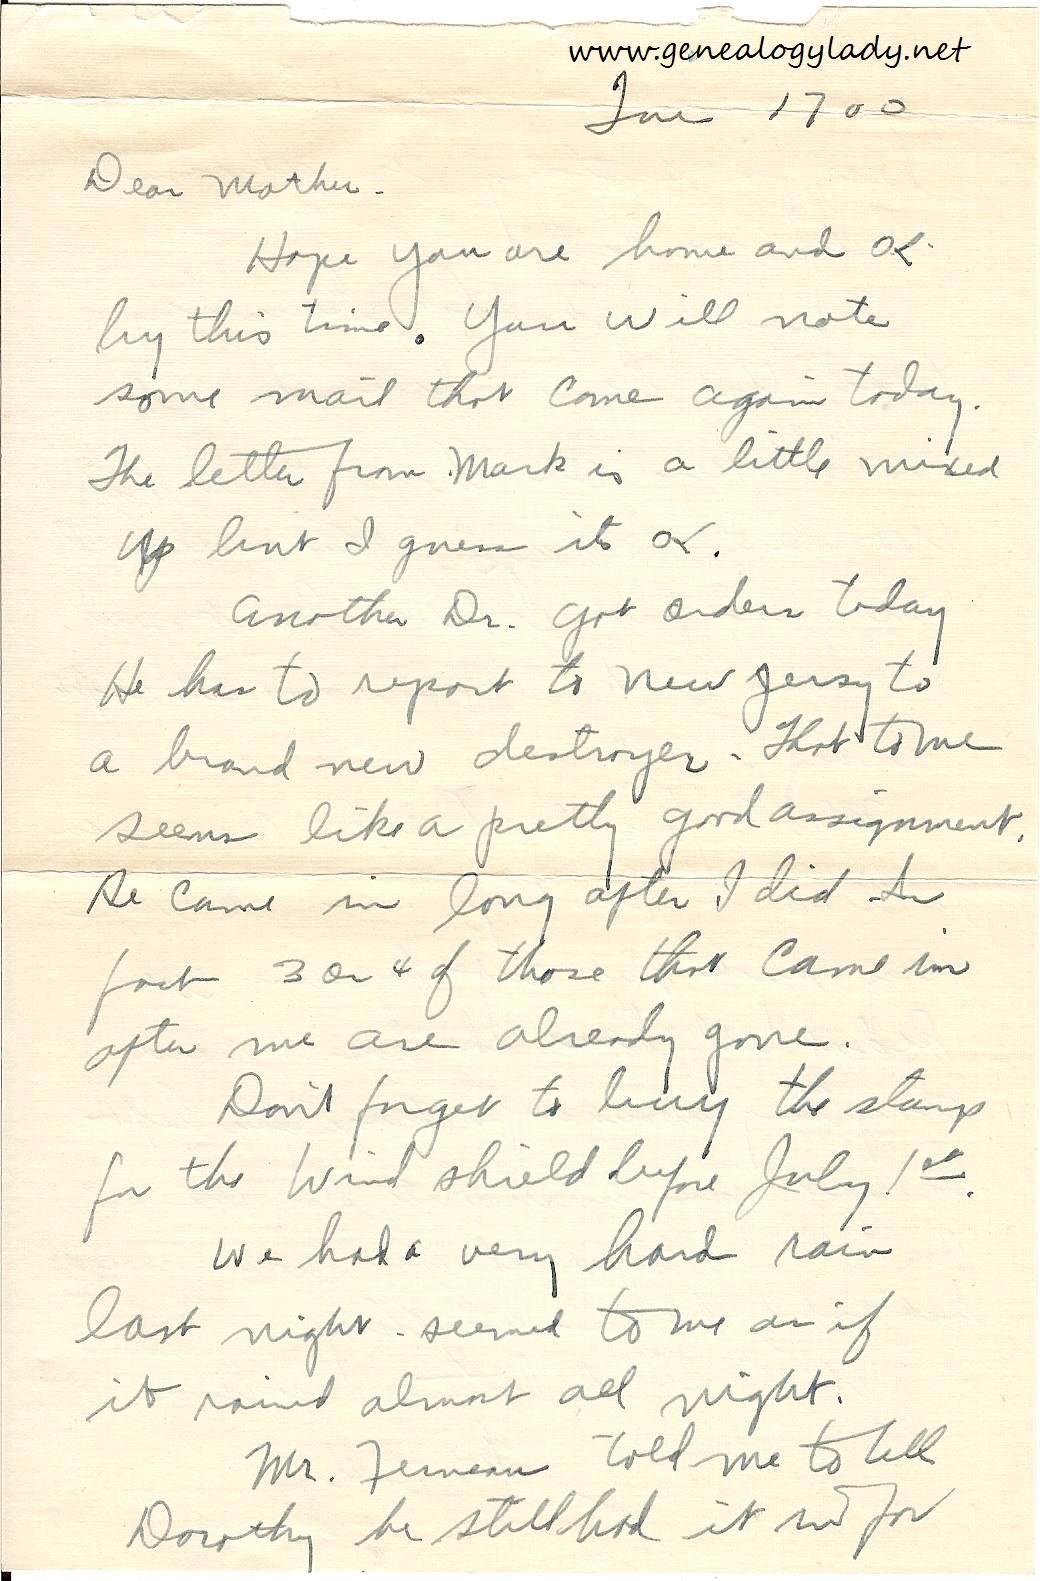 www.genealogylady.net
Tue 1700
Dear Mother.
Hope you are home and OK
by this time. You will note
some mail that came again today.
The letter from Mark is a little mixed
up but I guess its OK.
Another Dr. got orders today
He has to report to New Jersey to
a brand new destroyer. That to me
seems like a pretty good assignment.
He came in long after I did In
fact 3 or 4 of those that came in
after me are already gone.
Don't forget to buy the stamp
for the wind shield before July 1st.
We had a very hard rain
last night - seemed to me as if
it rained almost all night.
Mr. told me to tell
Dorothy he still had it in for